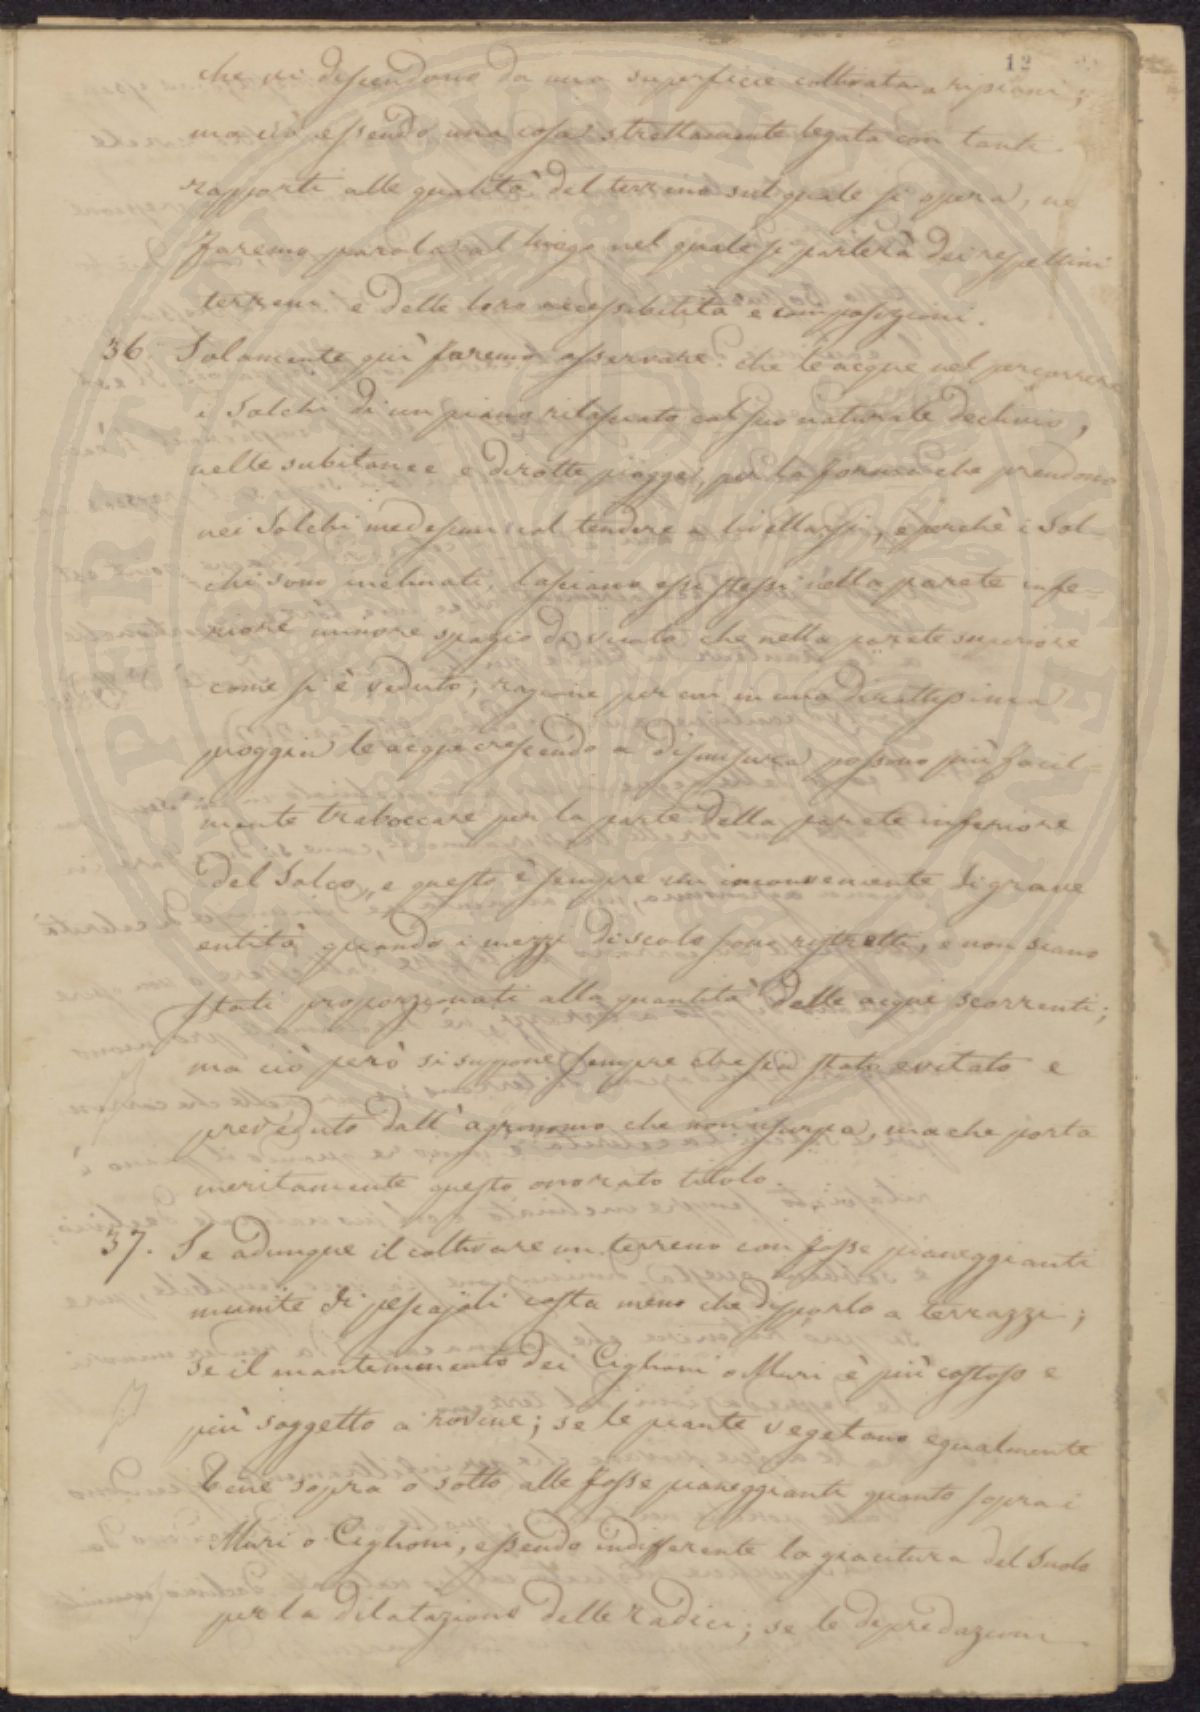 12
che vi discendono da una superficie coltivata a ripiani;
ma ciò essendo una cosa strettamente legata con tanti
rapporti alle qualità del terreno sul quale si opera, ne
faremo parola al luogo nel quale si parlerà dei respettivi
terreni e delle loro accessibilità e composizioni.
36. Solamente quì faremo osservare che le acque nel percorrere
i Solchi di un piano rilasciato col suo naturale declivio,
nelle subitanee e dirotte piogge, per la forma che prendono
nei Solchi medesimi col tendere a livellarsi, e perchè i Sol=
chi sono inclinati, lasciano essi stessi nella parete infe=
riore minore spazio di vuoto che nella parete superiore
come si è veduto; ragione per cui in una dirottissima
pioggia le acque crescendo a dismisura possono più facil=
mente traboccare per la parte della parete inferiore
del Solco, e questo è sempre un inconveniente di grave
entità quando i mezzi di scolo sono ristretti, e non siano
stati proporzionati alla quantità delle acque scorrenti;
ma ciò però si suppone sempre che sia stato evitato e
preveduto dall'agronomo che non usurpa, ma che porta
meritamente questo onorato titolo.
37. Se adunque il coltivare un terreno con fosse pianeggianti
munite di pescajoli costa meno che disporlo a terrazzi;
se il mantenimento dei Ciglioni o Muri è più costoso e
più soggetto a rovine; se le piante vegetano egualmente
bene sopra o sotto alle fosse pianeggianti quanto sopra i
Muri o Ciglioni, essendo indifferente la giacitura del Suolo
per la dilatazione delle radici; se le depredazioni